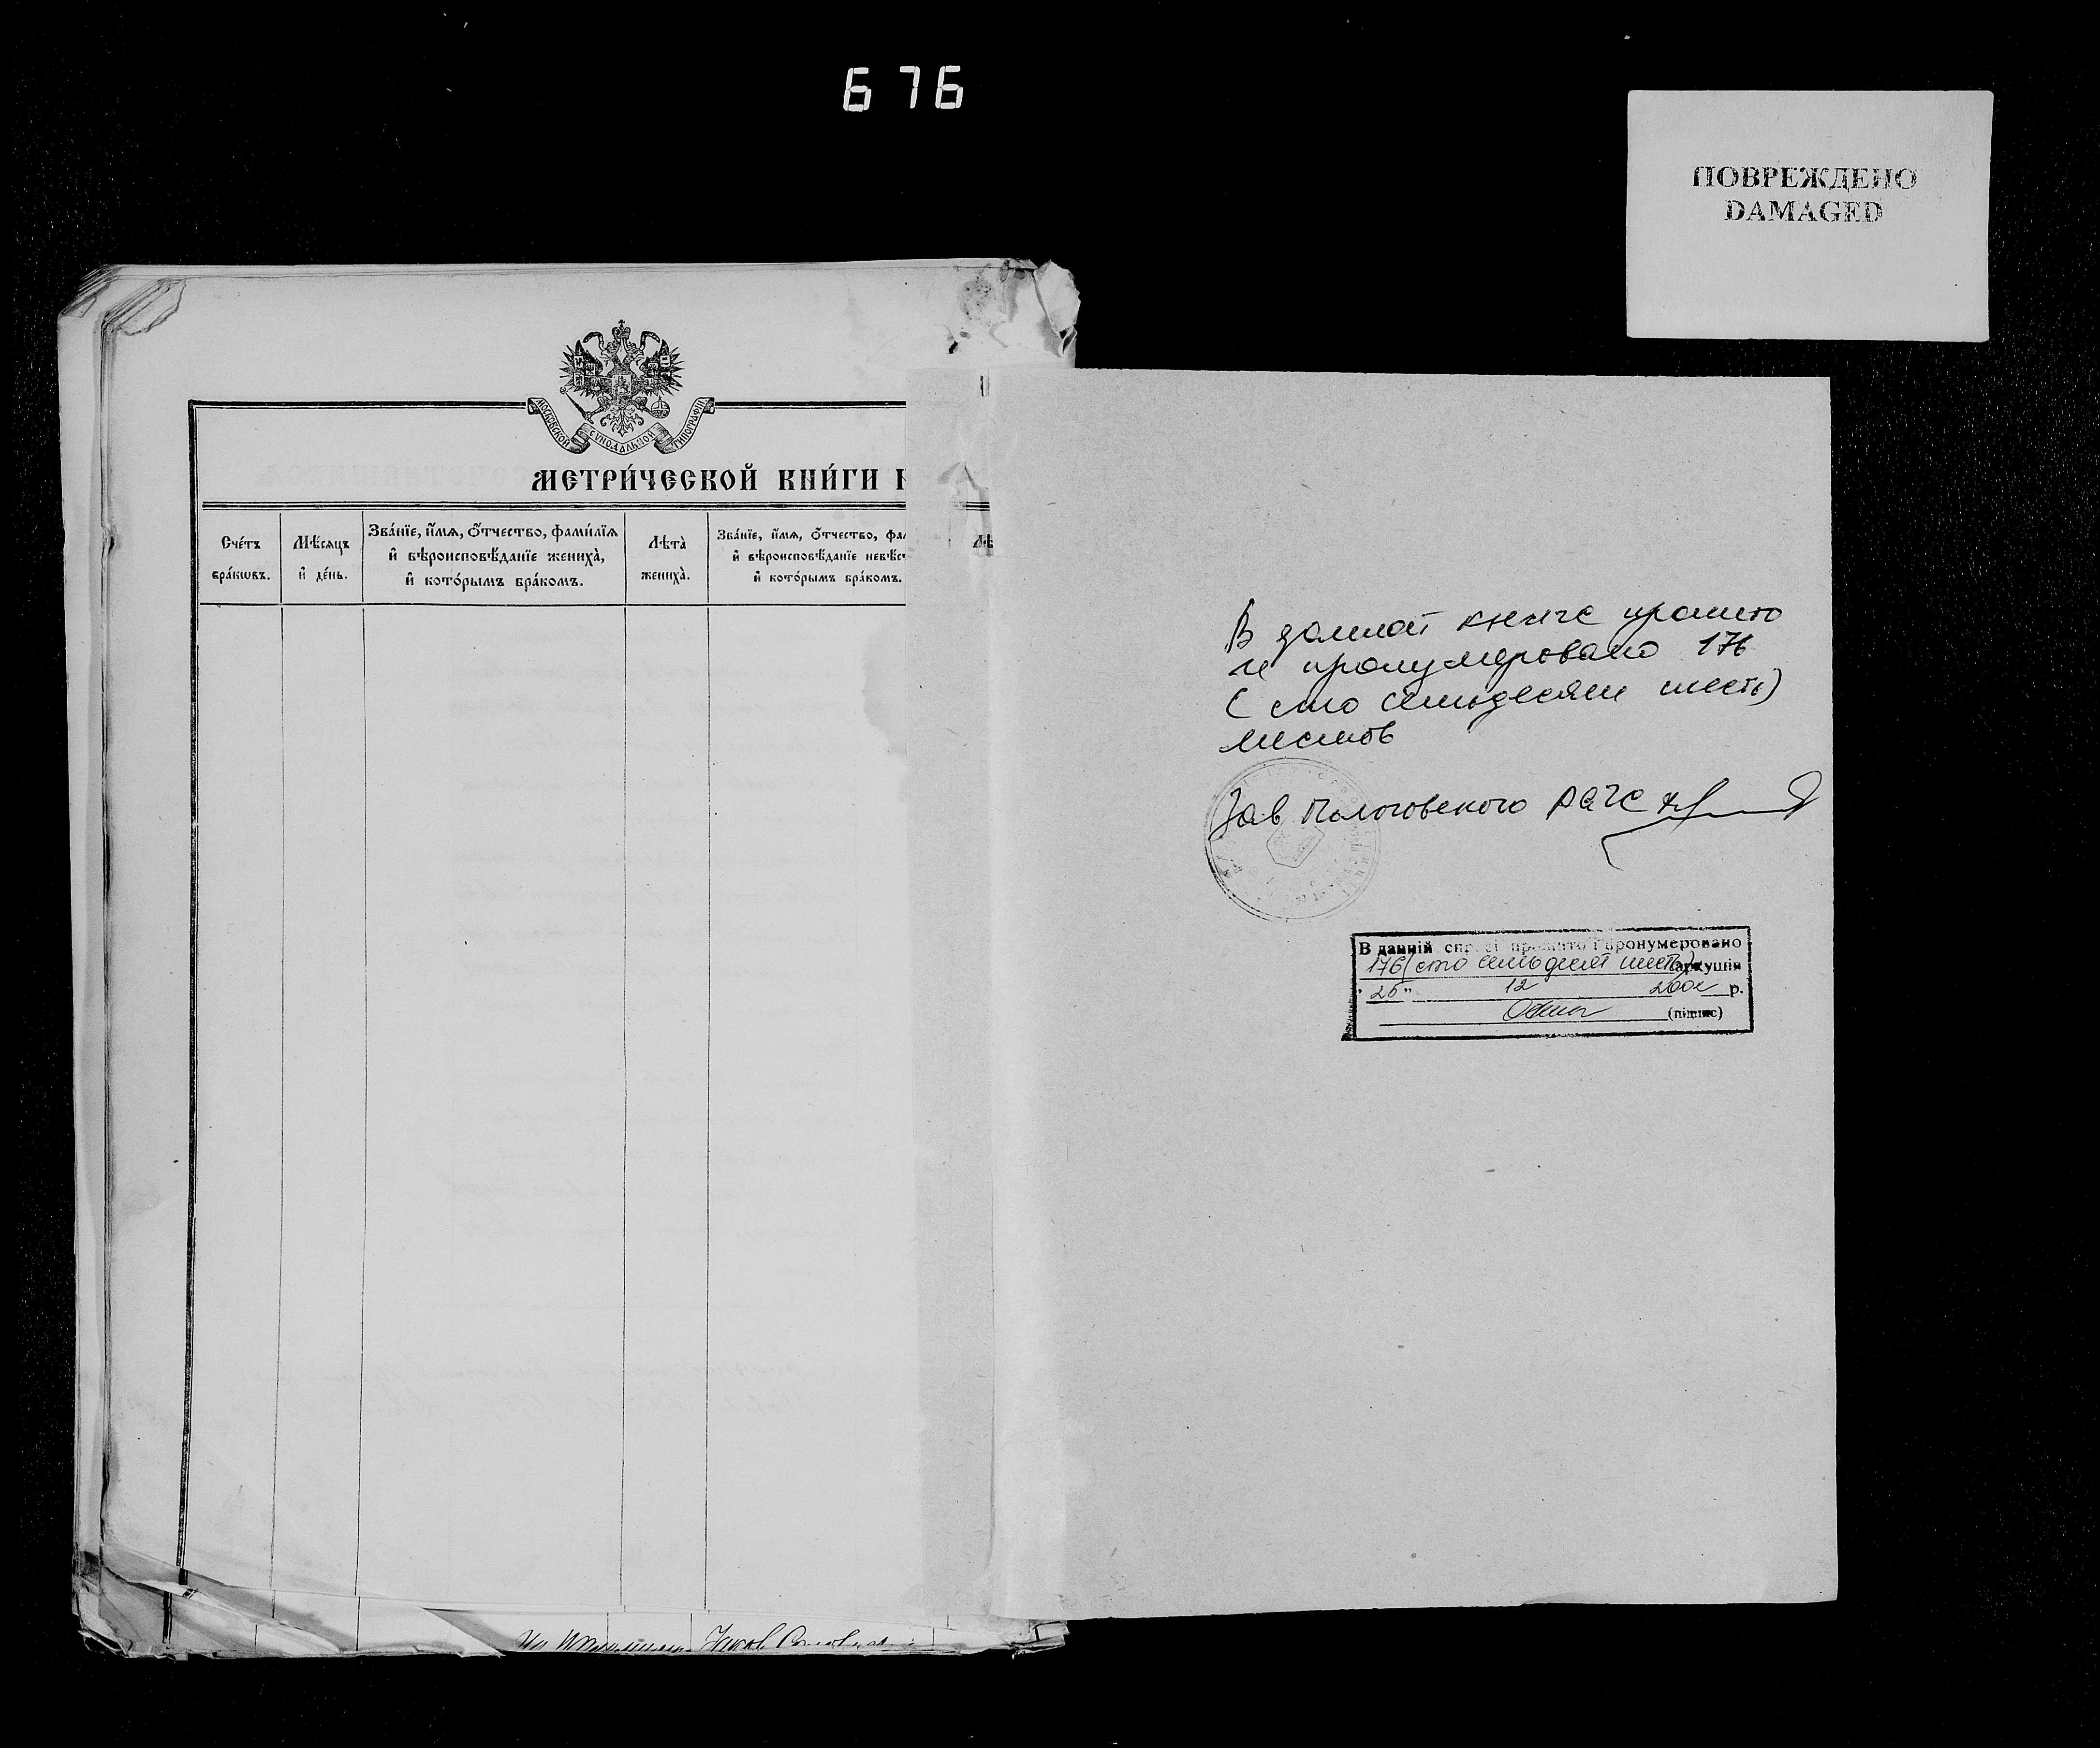 676
ПОВРЕЖДЕНО
DAMAGED
МОСКОВСКОЙ СѴНОДАЛЬНОЙ ТИПОГРАФІИ
МЕТРИ́ЧЕСКОЙ КНИ́ГИ
Сче́тъ
бра́кѡвъ.
Мѣ́сяцъ
и҆ де́нь.
Зва́нїе, и҆́мѧ, ѻ҆́тчество, фами́лїѧ
и҆ вѣроисповѣ́данїе жениха̀,
и҆ кото́рымъ бра́комъ.
Лѣта̀
жениха̀.
Зва́нїе, и҆́мѧ, ѻ҆́тчество,
и҆ вѣроисповѣ́данїе
и҆ кото́рымъ бра́комъ.
В данной книге прошито
и пронумеровано 176
(сто семьдесят шесть)
листов
Зав Пологовского РАГС
В данній справі прошито і пронумеровано
176 (сто семьдесят шесть) аркушів
"26" 12 р.
(підпис)